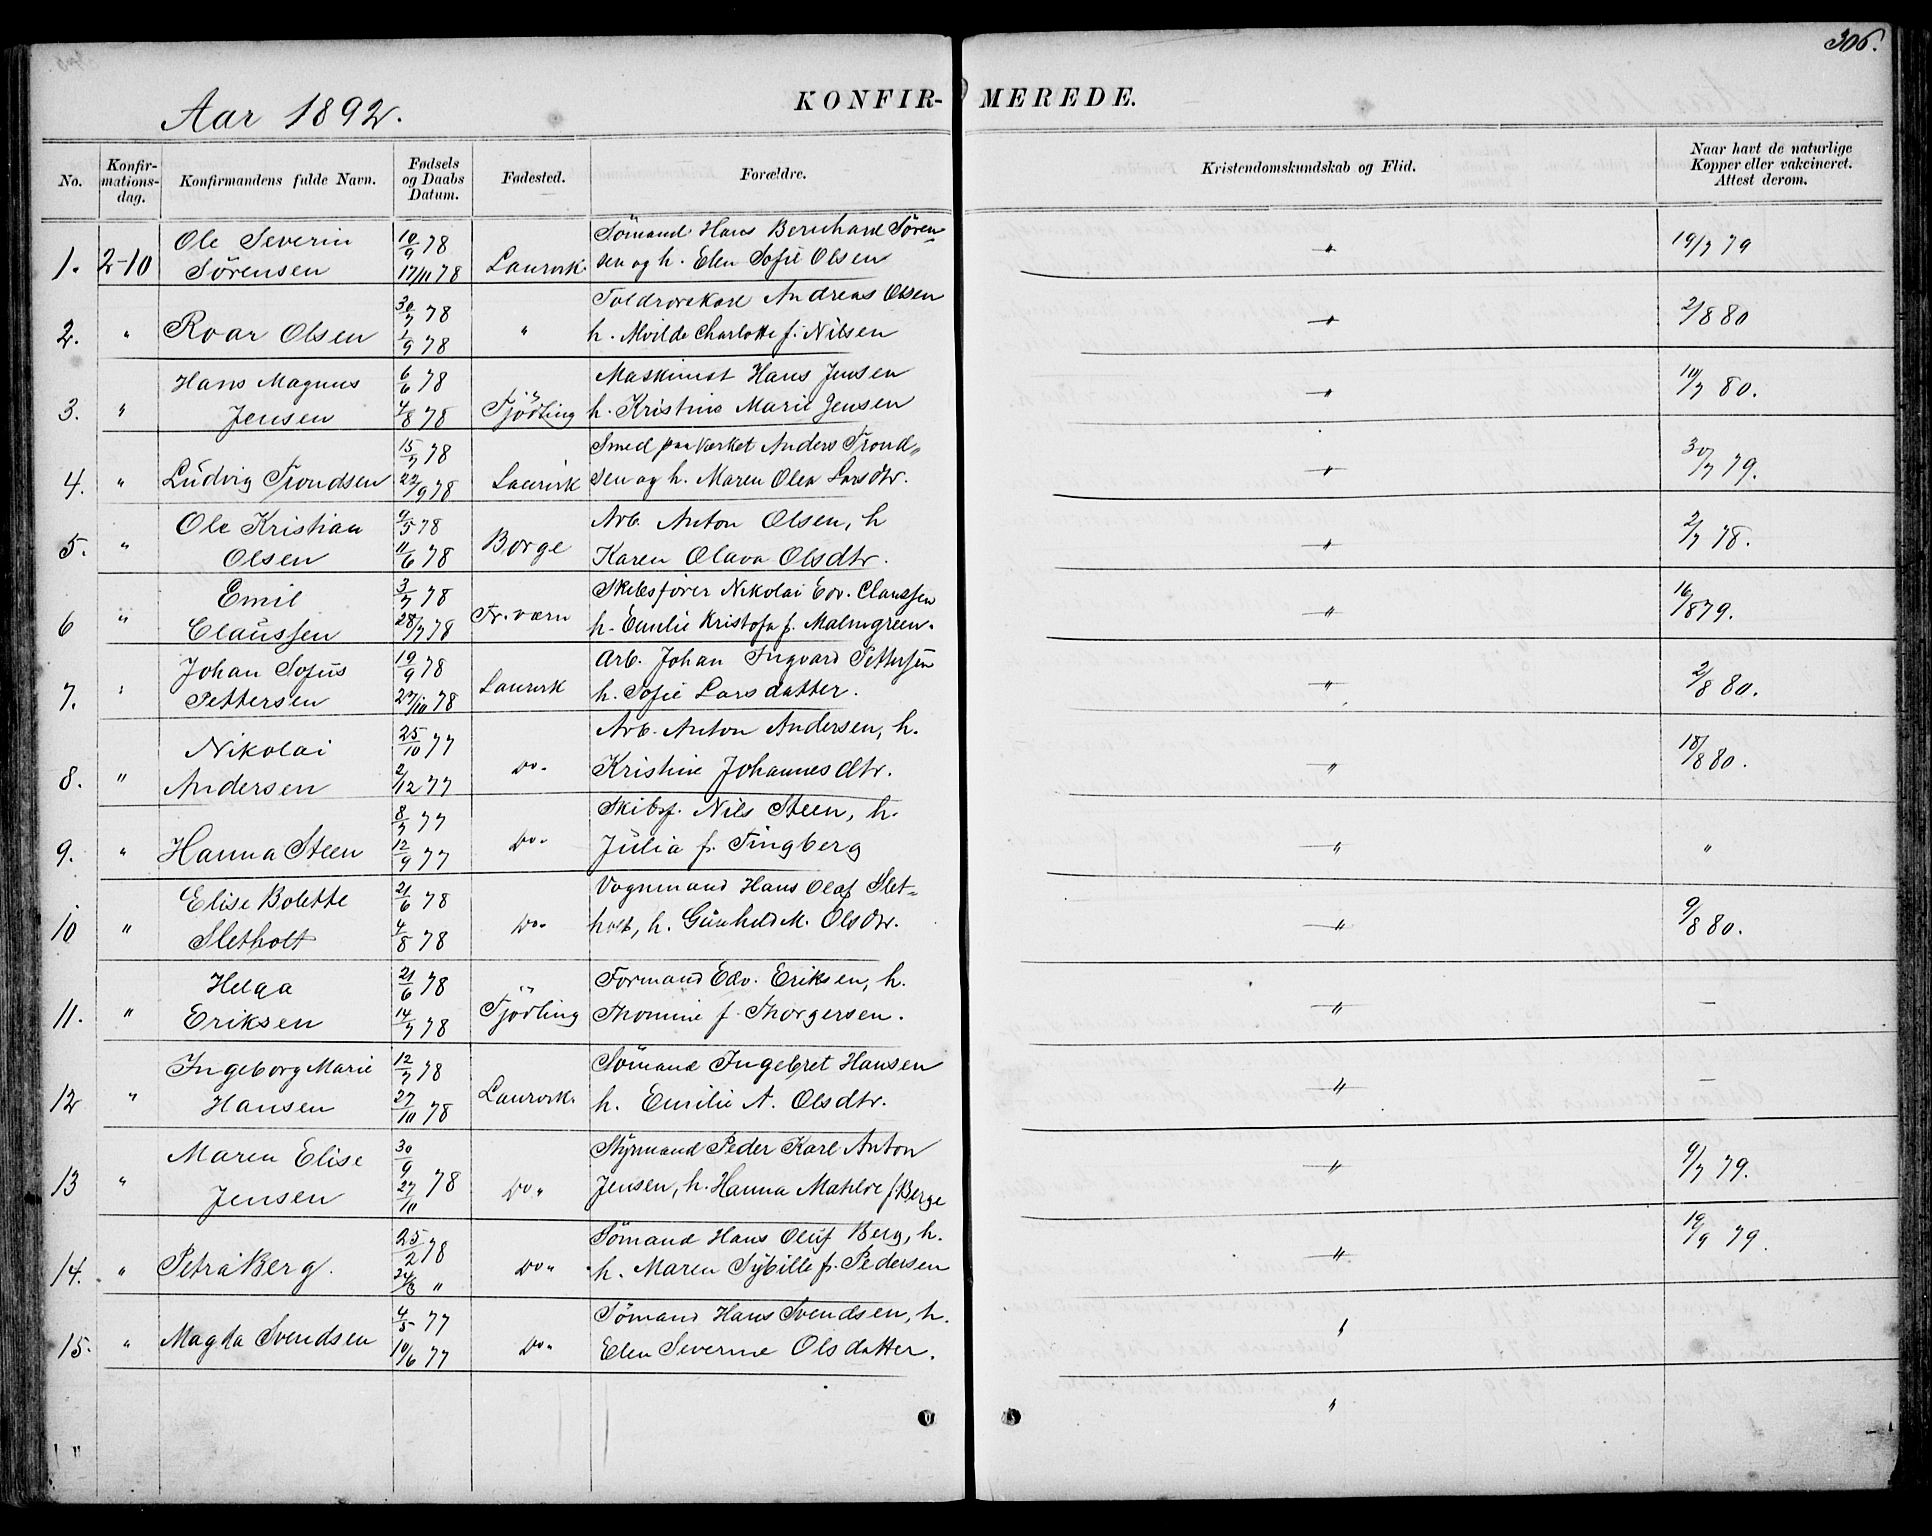 306.
Aar 1892.
KONFIR- MEREDE.
No.
Konfir-
mations-
dag.
Konfirmandens fulde Navn.
Fødsels
og Daabs
Datum.
Fødested.
Forældre.
Kristendomskundskab og Flid.
Naar havt de naturlige
Kopper eller vakcineret.
Attest derom.
Ole Severin 10/9 78 Sömand Hans Bernhard Sören-
1. 2-10 Sørensen 17/11 78 Laurvik sen og h. Elen Sofie Olsen " 19/7 79
30/7 78 Toldroerskarl Andreas Olsen
2. " Roar Olsen 1/9 78 " h. Charlotte f. Nilsen " 2/8 80
Hans Magnus 6/6 78 Maskinist Hans Jensen
3. " Jensen 4/8 78 Tjödling h. Kristine Marie Jensen " 10/7 80.
15/7 78 Smed paa Værket Anders Trond"
4. " Ludvig Trondsen 22/9 78 Laurvik sen og h. Maren Olea Larsdtr. " 30/7 79.
Ole Kristian 4/5 78 Arb. Anton Olsen, h
5. " Olsen 11/6 78 Borge Karen Olava Olsdtr. " 2/7 78.
Emil 3/7 78 Skibsfører Nikolai Edv. Claussen
6 " Claussen 28/7 78 Fr.værn h. Emilie Kristofa f. Malmgreen. " 16/8 79.
Johan Sofus 19/9 78 Arb. Johan Ingvard Pettersen
7. " Pettersen 27/10 78 Laurvik h. Sofie Larsdatter. " 2/8 80.
Nikolai 25/10 77 Arb. Anton Andersen, h.
8. " Andersen 2/12 77 Do. Kristine Johannesdtr. " 18/8 80.
8/7 77 Skibsf. Nils Steen, h.
9. " Hanna Steen 12/9 77 Do. Julia f. Tingberg " "
Elise Bolette 21/6 78 Vognmand Hans Olaf Slet-
10 " Sletholt 4/8 78 Do. holt, h. Gunhild M. Olsdtr. " 9/8 80.
Helga 21/6 78 Formand Edv. Eriksen, h.
11. " Eriksen 14/7 78 Tjödling Thomine f. Thorgersen. " -
Ingeborg Marie 12/7 78 Sömand Ingebret Hansen
12 " Hansen 27/10 78 Laurvik. h. Emilie A. Olsdtr. " -
Maren Elise 30/9 Styrmand Peder Karl Anton
13 " Jensen 27/10 78 Do " Jensen, h. Hanna Matilde f. Berge " 9/7 79.
25/2 78 Sömand Hans Oluf Berg, h.
14. " Petra Berg. 24/3 " Do " h. Maren Sybille f. Pedersen " 19/9 79.
4/5 77 Sömand Hans Svendsen, h.
15. " Magda Svendsen 10/6 77 Do. Elen Severine Olsdatter. "
"